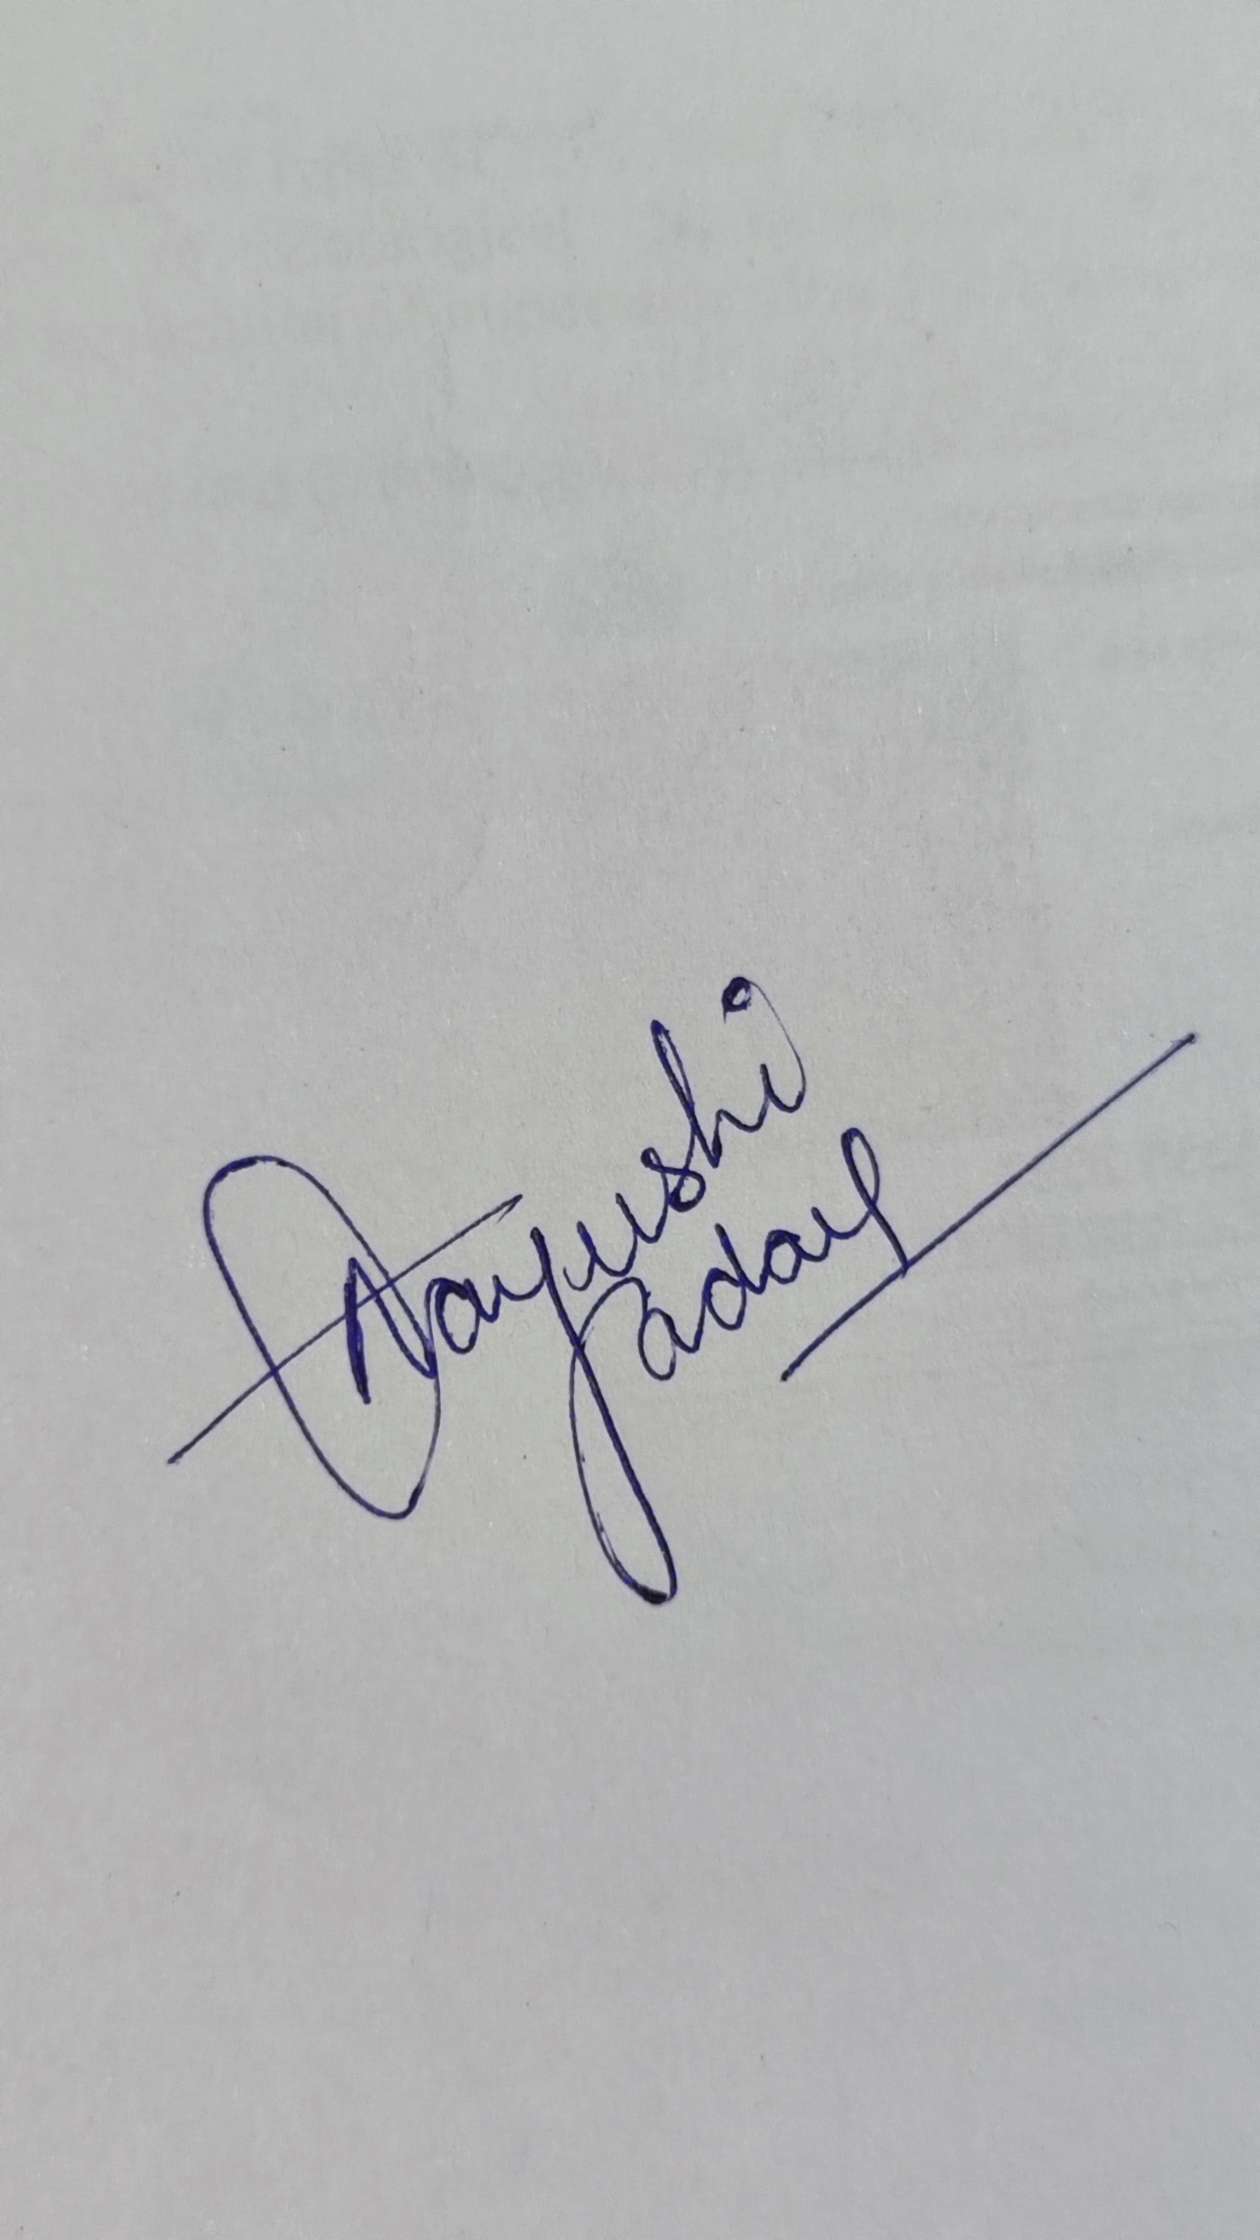 Aayushi
Yadav